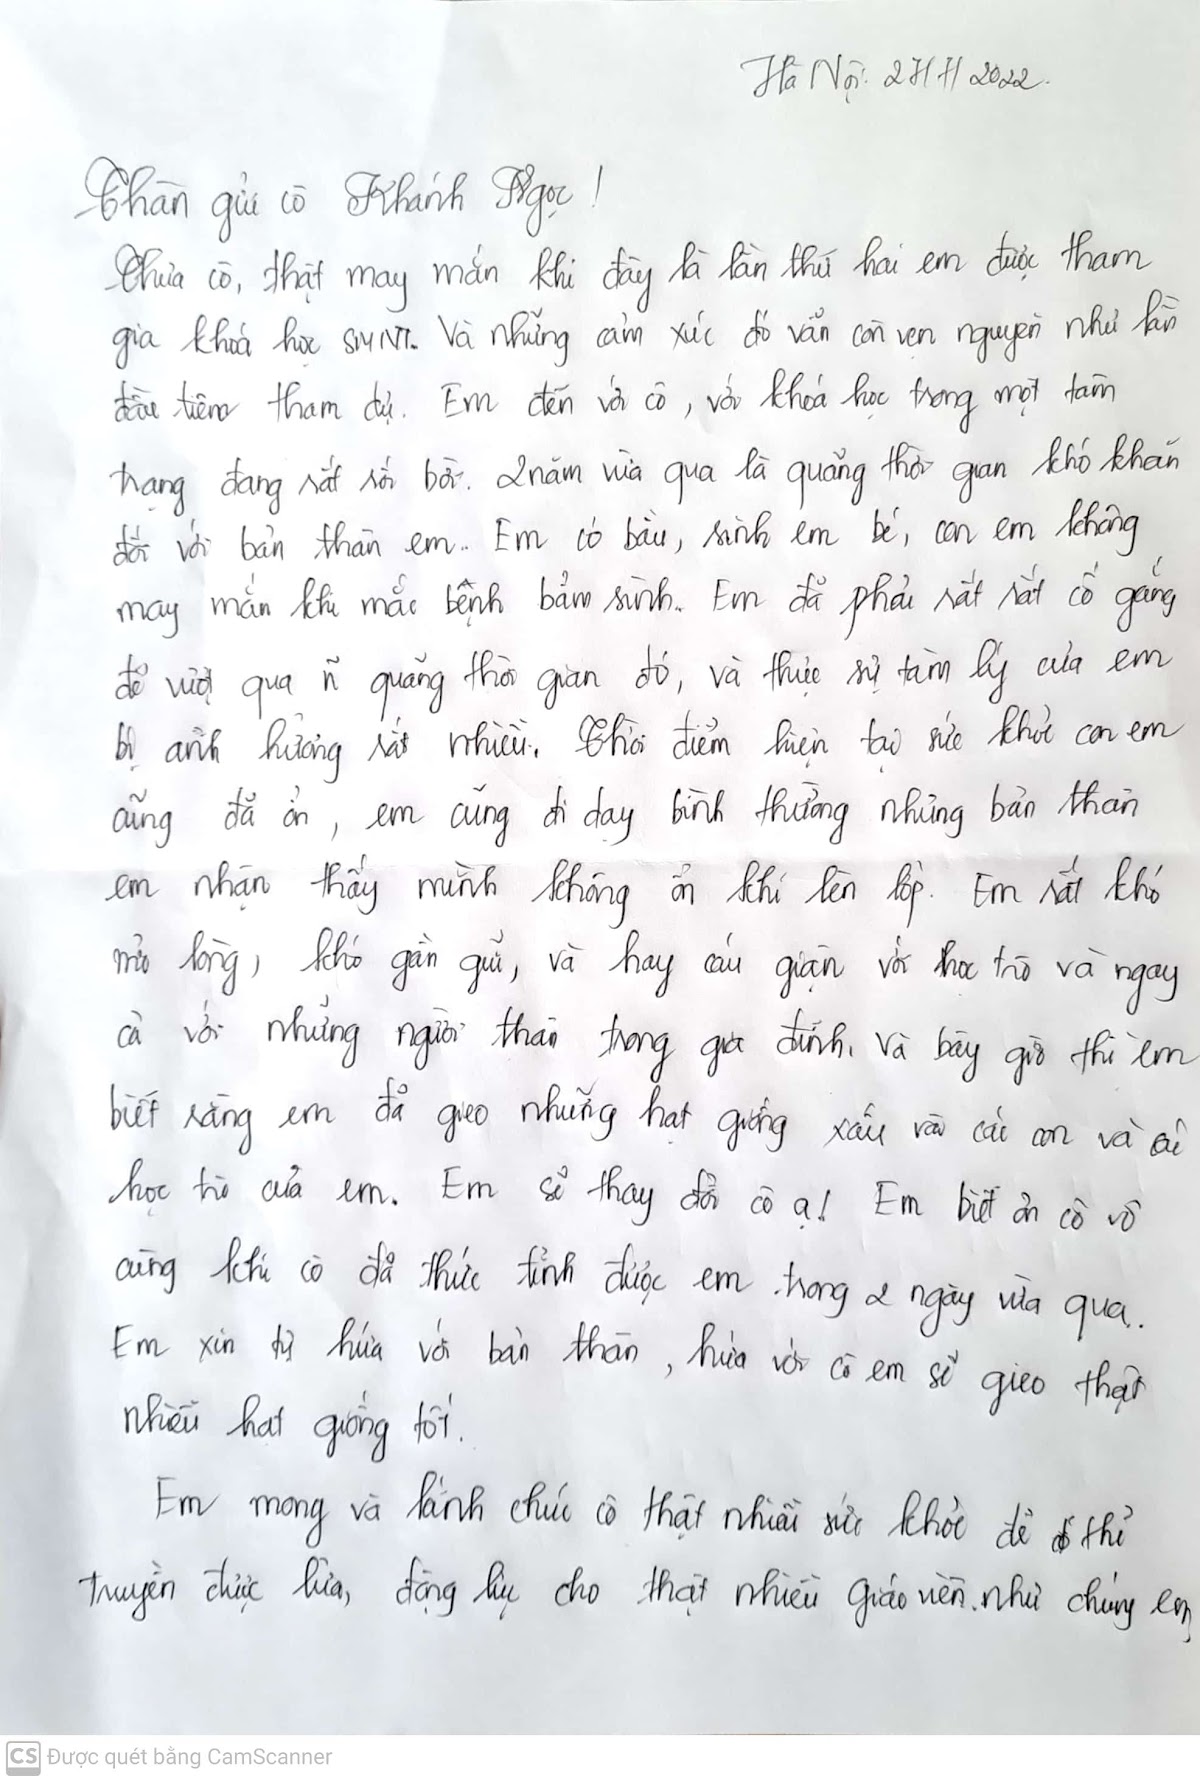 Hà Nội: 27/7/2022.
Thân gửi cô Khánh Ngọc!
Thưa cô, thật may mắn khi đây là lần thứ hai em được tham
gia khoá học SMNT. Và những cảm xúc đó vẫn còn vẹn nguyên như lần
đầu tiên tham dự. Em đến với cô, với khoá học trong một tâm
trạng đang rất rối bời. 2 năm vừa qua là quãng thời gian khó khăn
đối với bản thân em. Em có bầu, sinh em bé, con em không
may mắn khi mắc bệnh bẩm sinh. Em đã phải rất rất cố gắng
để vượt qua ñ quãng thời gian đó, và thực sự tâm lý của em
bị ảnh hưởng rất nhiều. Thời điểm hiện tại sức khoẻ con em
cũng đã ổn, em cũng đi dạy bình thường nhưng bản thân
em nhận thấy mình không ổn khi lên lớp. Em rất khó
mở lòng, khó gần gũi, và hay cáu giận với học trò và ngay
cả với những người thân trong gia đình. Và bây giờ thì em
biết rằng em đã gieo những hạt giống xấu vào các con và các
học trò của em. Em sẽ thay đổi cô ạ! Em biết ơn cô vô
cùng khi cô đã thức tỉnh được em trong 2 ngày vừa qua.
Em xin tự hứa với bản thân, hứa với cô em sẽ gieo thật
nhiều hạt giống tốt.
Em mong và kính chúc cô thật nhiều sức khoẻ để có thể
truyền được lửa, động lực cho thật nhiều Giáo viên như chúng em
CS Được quét bằng CamScanner